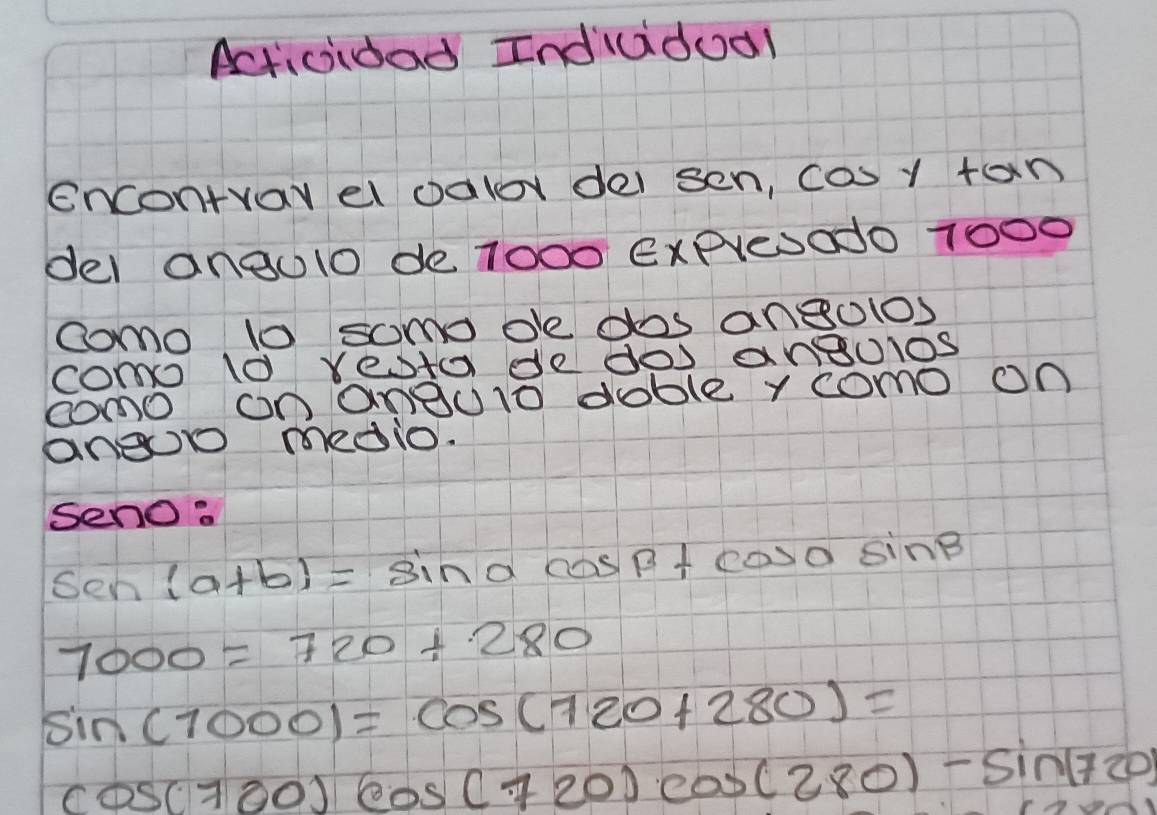 Actividad Individual
Encontrar el valor del sen, cos y tan
del angulo de 1000 Expresado 1000
como la suma de dos angulos
como la resta de dos angulos
como un angulo doble y como un
angulo medio.
seno:
Sen (a+b) = sin a cos β + cos a sin β
1000 = 720 + 280
sin (1000) = cos (720 + 280) =
cos(700) cos (720) cos (280) - sin(720)